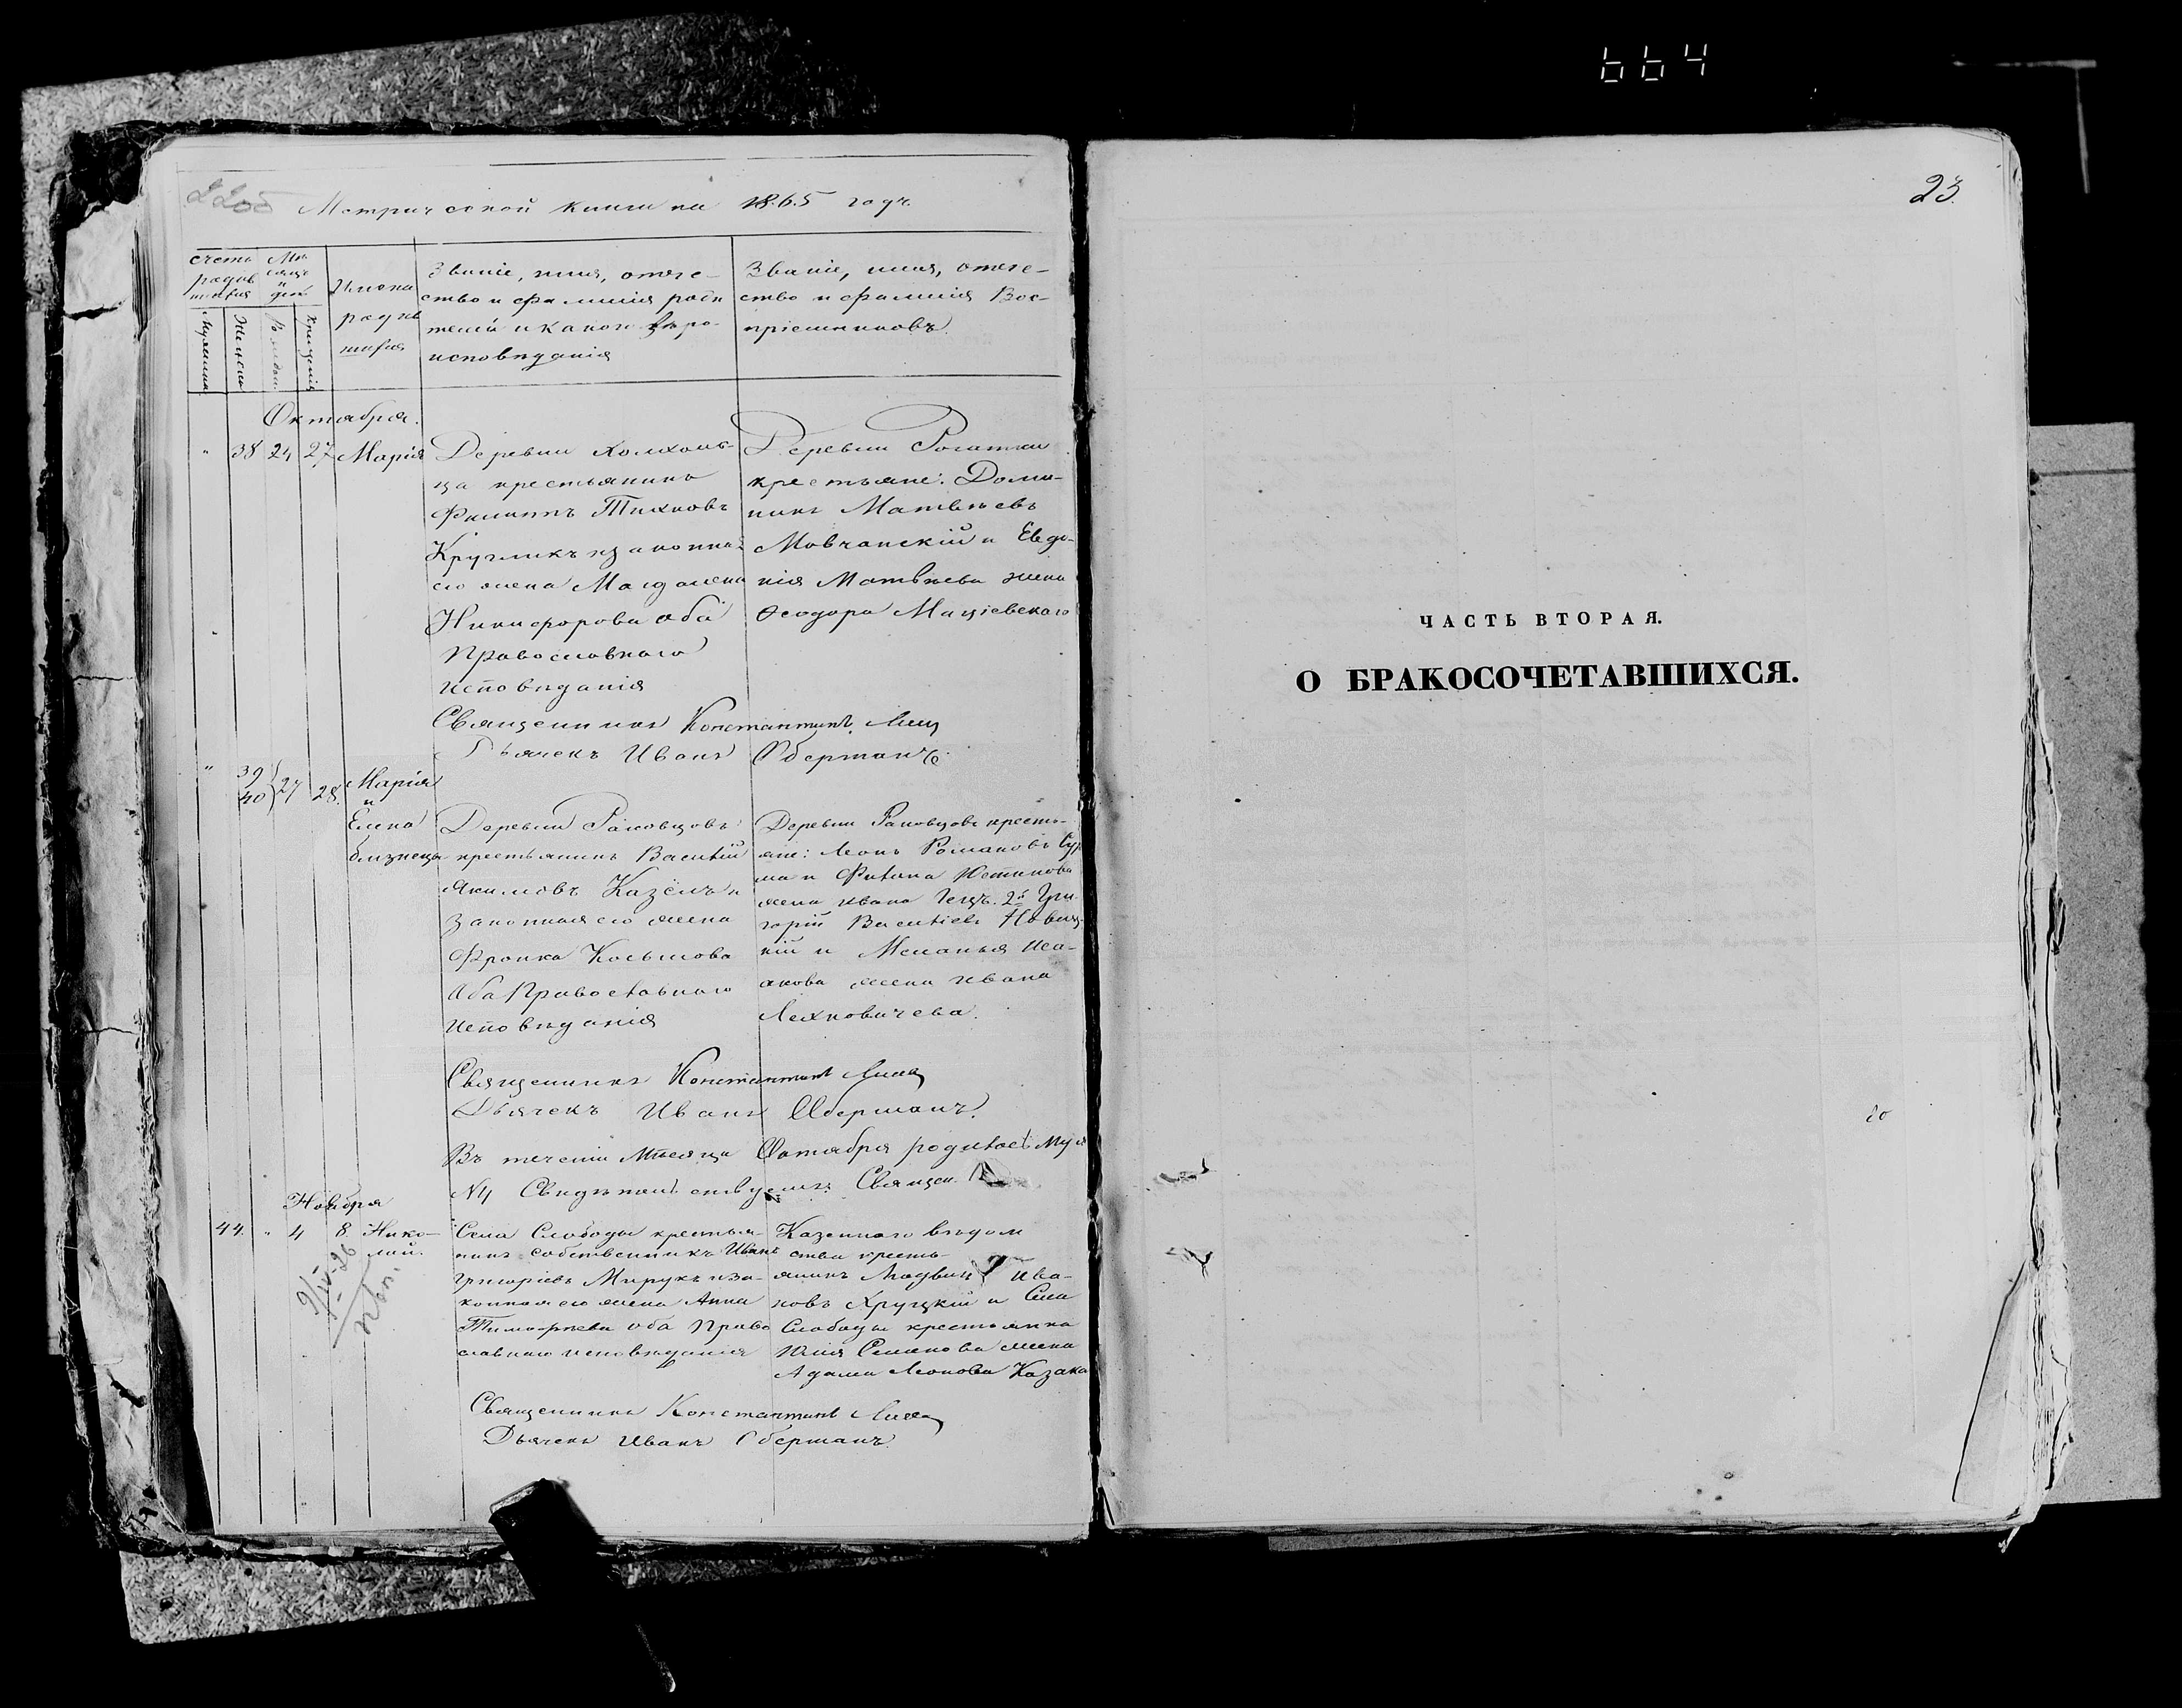 664
22об Метрической книги на 1865 годъ.
счетъ родившихся
Мужеска
Женска
Мѣсяцъ и день
Рожден.
Крещенія
Имена родившихся
Званіе, имя, отече-
ство и фамилія роди
телей и какого вѣро-
исповѣданія
Званіе, имя, отече-
ство и фамилія Вос-
пріемниковъ.
Октября.
" 38 24 27 Марія
Деревни Холхоли-
ца крестьянинъ
Филиппъ Тихновъ
Кругликъ и законная
его жена Магдалена
Никифорова оба
Православнаго
исповѣданія
Деревни Рогатки
крестьяне: Доми-
никъ Матвѣевъ
Мовчанскій и Евдо-
кія Матвѣева жена
Ѳеодора Мацѣевскаго
Священникъ Константинъ Лищ
Дьячекъ Иванъ Оберманъ
" 39 40 27 28. Марія
и
Елена
близнецы
Деревни Раковцовъ
крестьянинъ Василій
Якимовъ Казёлъ и
законная его жена
Франка Косьмова
оба Православнаго
исповѣданія
Деревни Раковцовъ кресть-
яне: Леонъ Романовъ
ма и Филипа Юстинова
жена Ивана 2й Гри-
горій Васильевъ Новиц-
кій и Меланья Иса-
акова жена Ивана
Лехновичева.
Священникъ Константинъ
Дьячекъ Иванъ Оберманъ.
Въ теченіи Мѣсяца Октября родилось муж
№4 Свидѣтельствуемъ: Священ.
Ноября
44. " 4 8. Нико-
лай.
9/IV-26
Села Слободы крестья-
нинъ собственникъ Иванъ
Григорьевъ Мирукъ и за-
конная его жена Анна
Тимофеева оба Право
славнаго исповѣданія
Казеннаго вѣдом
ства кресть-
янинъ Людвигъ Ива-
новъ Хруцкій и Села
Слободы крестьянка
Юлія Семенова жена
Адама Леонова Казака
Священникъ Константинъ
Дьячекъ Иванъ Оберманъ.
23.
ЧАСТЬ ВТОРАЯ.
О БРАКОСОЧЕТАВШИХСЯ.